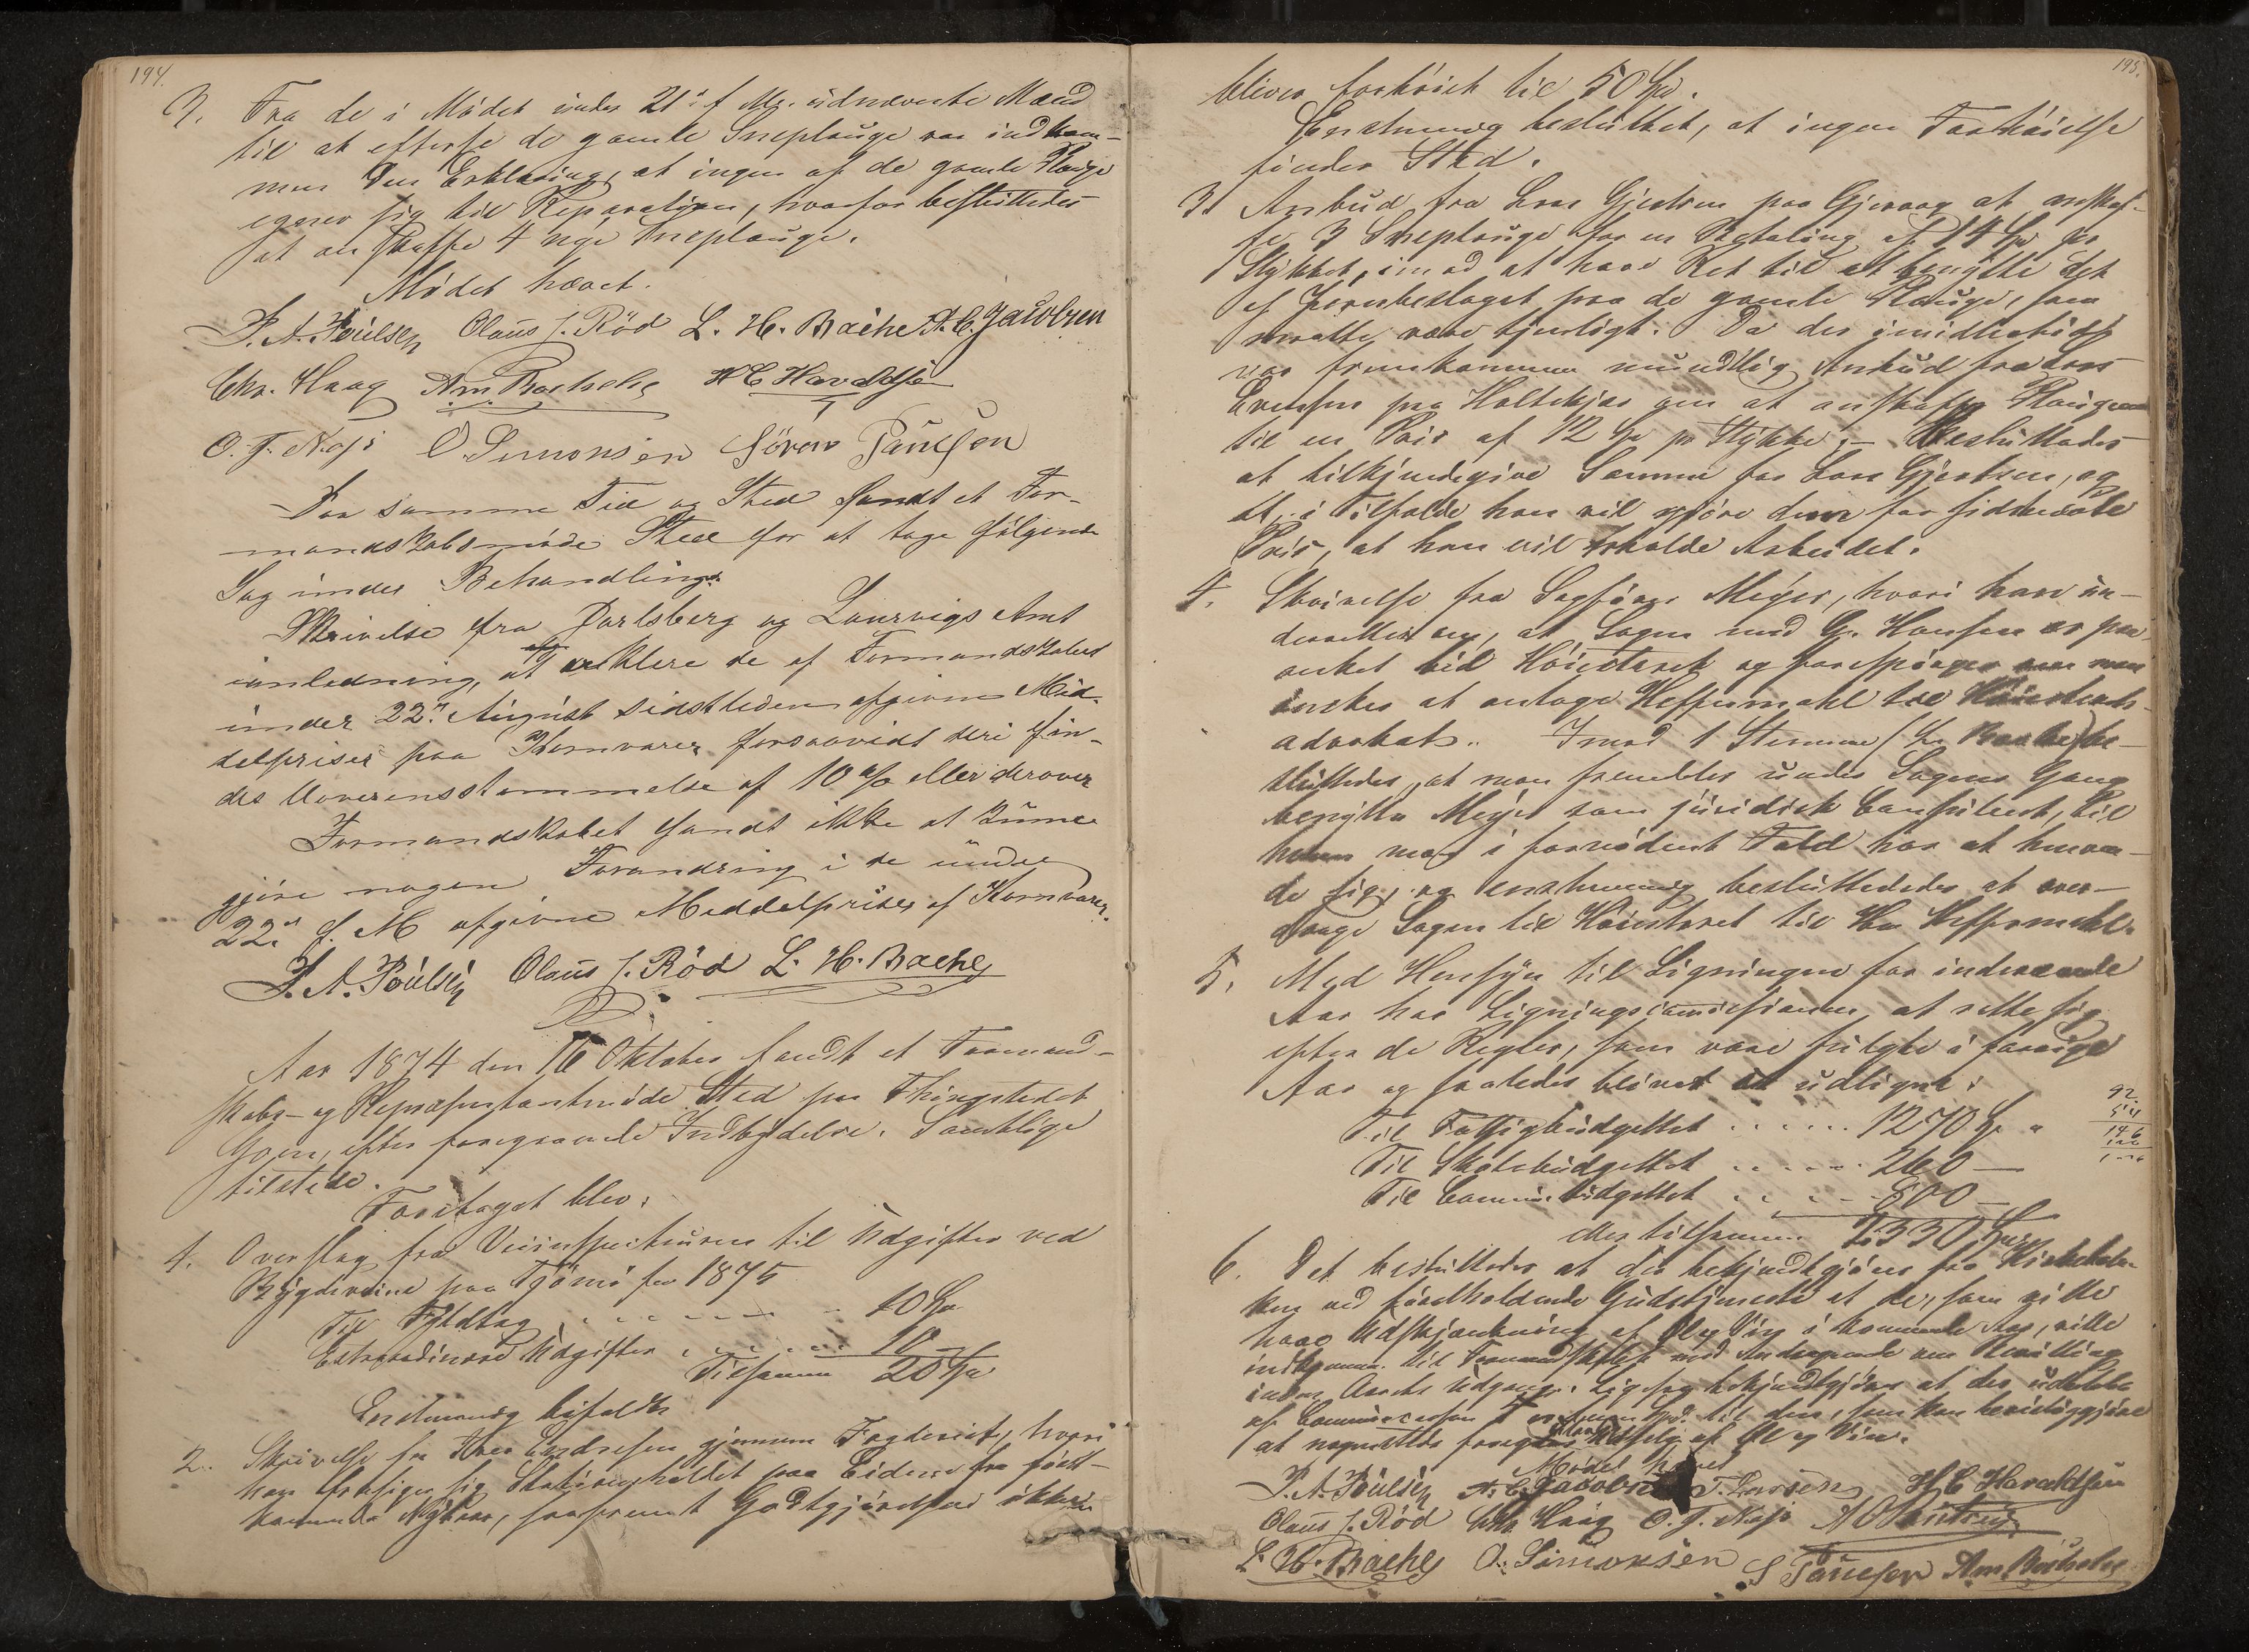 194.
3. Fra de i Mødet under 21de f. M. udnævnte Mænd
til at efterse de gamle Sneplouge var indkom-
men den Erklæring, at ingen af de gamle Plouge
egner sig til Reparation, hvorfor besluttedes
at anskaffe 4 nye Sneplouge.
Mødet hævet.
P. A. Poulsen Olaus J. Röd L. H. Bache A. C. Jacobsen
Chr. Haag Am Bachche H C Haraldsen
O. T. Nøjs O Simonsen Sören Paulsen
Paa samme Tid og Sted fandt et For-
mandskabsmøde Sted for at tage følgende
Sag under Behandling:
Skrivelse fra Jarlsberg og Laurvigs Amt
ianledning, at erklære de af Formandskabet
under 22de August sidstleden afgivne Mid-
delpriser paa Kornvarer forsaavidt deri fin-
des Uoverensstemmelse af 10 % eller derover
Formandskabet fandt ikke at kunne
gjøre nogen Forandring i de under
22de f. M afgivne Middelpriser af Kornvarer.
P. A. Poulsen Olaus J. Röd L. H. Bache
Aar 1874 den 16 Oktober fandt et Formand-
skabs- og Repræsentantmøde Sted paa Thingstedet
Goen, efter foregaaende Indbydelse. Samtlige
tilstede.
Foretaget blev:
1. Overslag fra Veiinspecteuren til Udgifter ved
Bygdeveiene paa Tjømø for 1875
Til Fyldtag . . . . . . 10 Spd
Extraordinære Udgifter . . . . . . 10 -
Tilsammen 20 Spd
Enstemmig bifaldt
2. Skrivelse fra Endresen gjennem Fogderiet, hvori
han frasiger sig Skatsholdet paa Eidene fra først-
kommende Nytaar, saafremt Godtgjørelsen ikke
195.
bliver forhøiet til 50 Spd.
Enstemmig besluttet, at ingen Forhøielse
finder Sted.
3. Anbud fra Lars Gjertsen paa Gjeraag at anskaf-
fe 3 Sneplouge for en Betaling af 14 Spd pr
Stykket, imod at have Ret til at benytte det
af Jernbeslaget paa de gamle Plouge, som
maatte være tjenligt. Da der imidlertid
var fremkommen mundtlig Anbud fra Lars
Evensen paa Holtekjær om at anskaffe Plougene
til en Pris af 12 Spd pr Stykke; – Besluttedes
at tilkjendegive Samme for Lars Gjertsen, og
at, i Tilfælde han vil gjøre dem for sidstnævnte
Pris, at han vil erholde Arbeidet.
4. Skrivelse fra Sagfører Meyer, hvori han un-
derretter om, at Sagen mod G. Hansen er paa-
anket til Høiesteret og forespørger om man
ønsker at antage Heffermehl til Høiesterets-
advokat. Imod 1 Stemme (L. Bache) be-
sluttedes, at man fremdeles under Sagens Gang
benytter Meyer som juridisk Consulent, til
hvem man i fornødent Fald har at henven-
de sig, og enstemmig besluttededes at over-
drage Sagen til Høiesteret til Hr Heffermehl.
5. Med Hensyn til Ligningen for indeværende
Aar har Ligningscommissionen at rette sig
efter de Regler, som vare fulgte i forrige
Aar og saaledes blevet at udligne:
Til Fattigbudgettet . . . . . . 1270 Spd "
Til Skolebudgettet . . . . . . 260 —
Til Communebudgettet . . . . 800 —
eller tilsammen 2330 Spd
6. Det besluttedes at der bekjendtgjøres fra Kirkebak-
ken ved førstholdende Gudstjeneste at de, som ville
have Udskjænkning af Øl og Vin i kommende Aar, ville
indkomme til Formandskabet med Andragende om Bevilling
inden Aarets Udgang. Ligesaa bekjendtgjøres at der udbetales
af Communecassen Spd. til den, som kan bevisliggjøre
at nogensteds foregaar Udsalg af Øl og Vin.
Mødet hævet
P. A. Poulsen A. C. Jacobsen T. Larsen H C Haraldsen
Olaus J. Röd Chr Haag O. T. Nøjs
L. H. Bache O. Simonsen S Paulsen Am Bachche